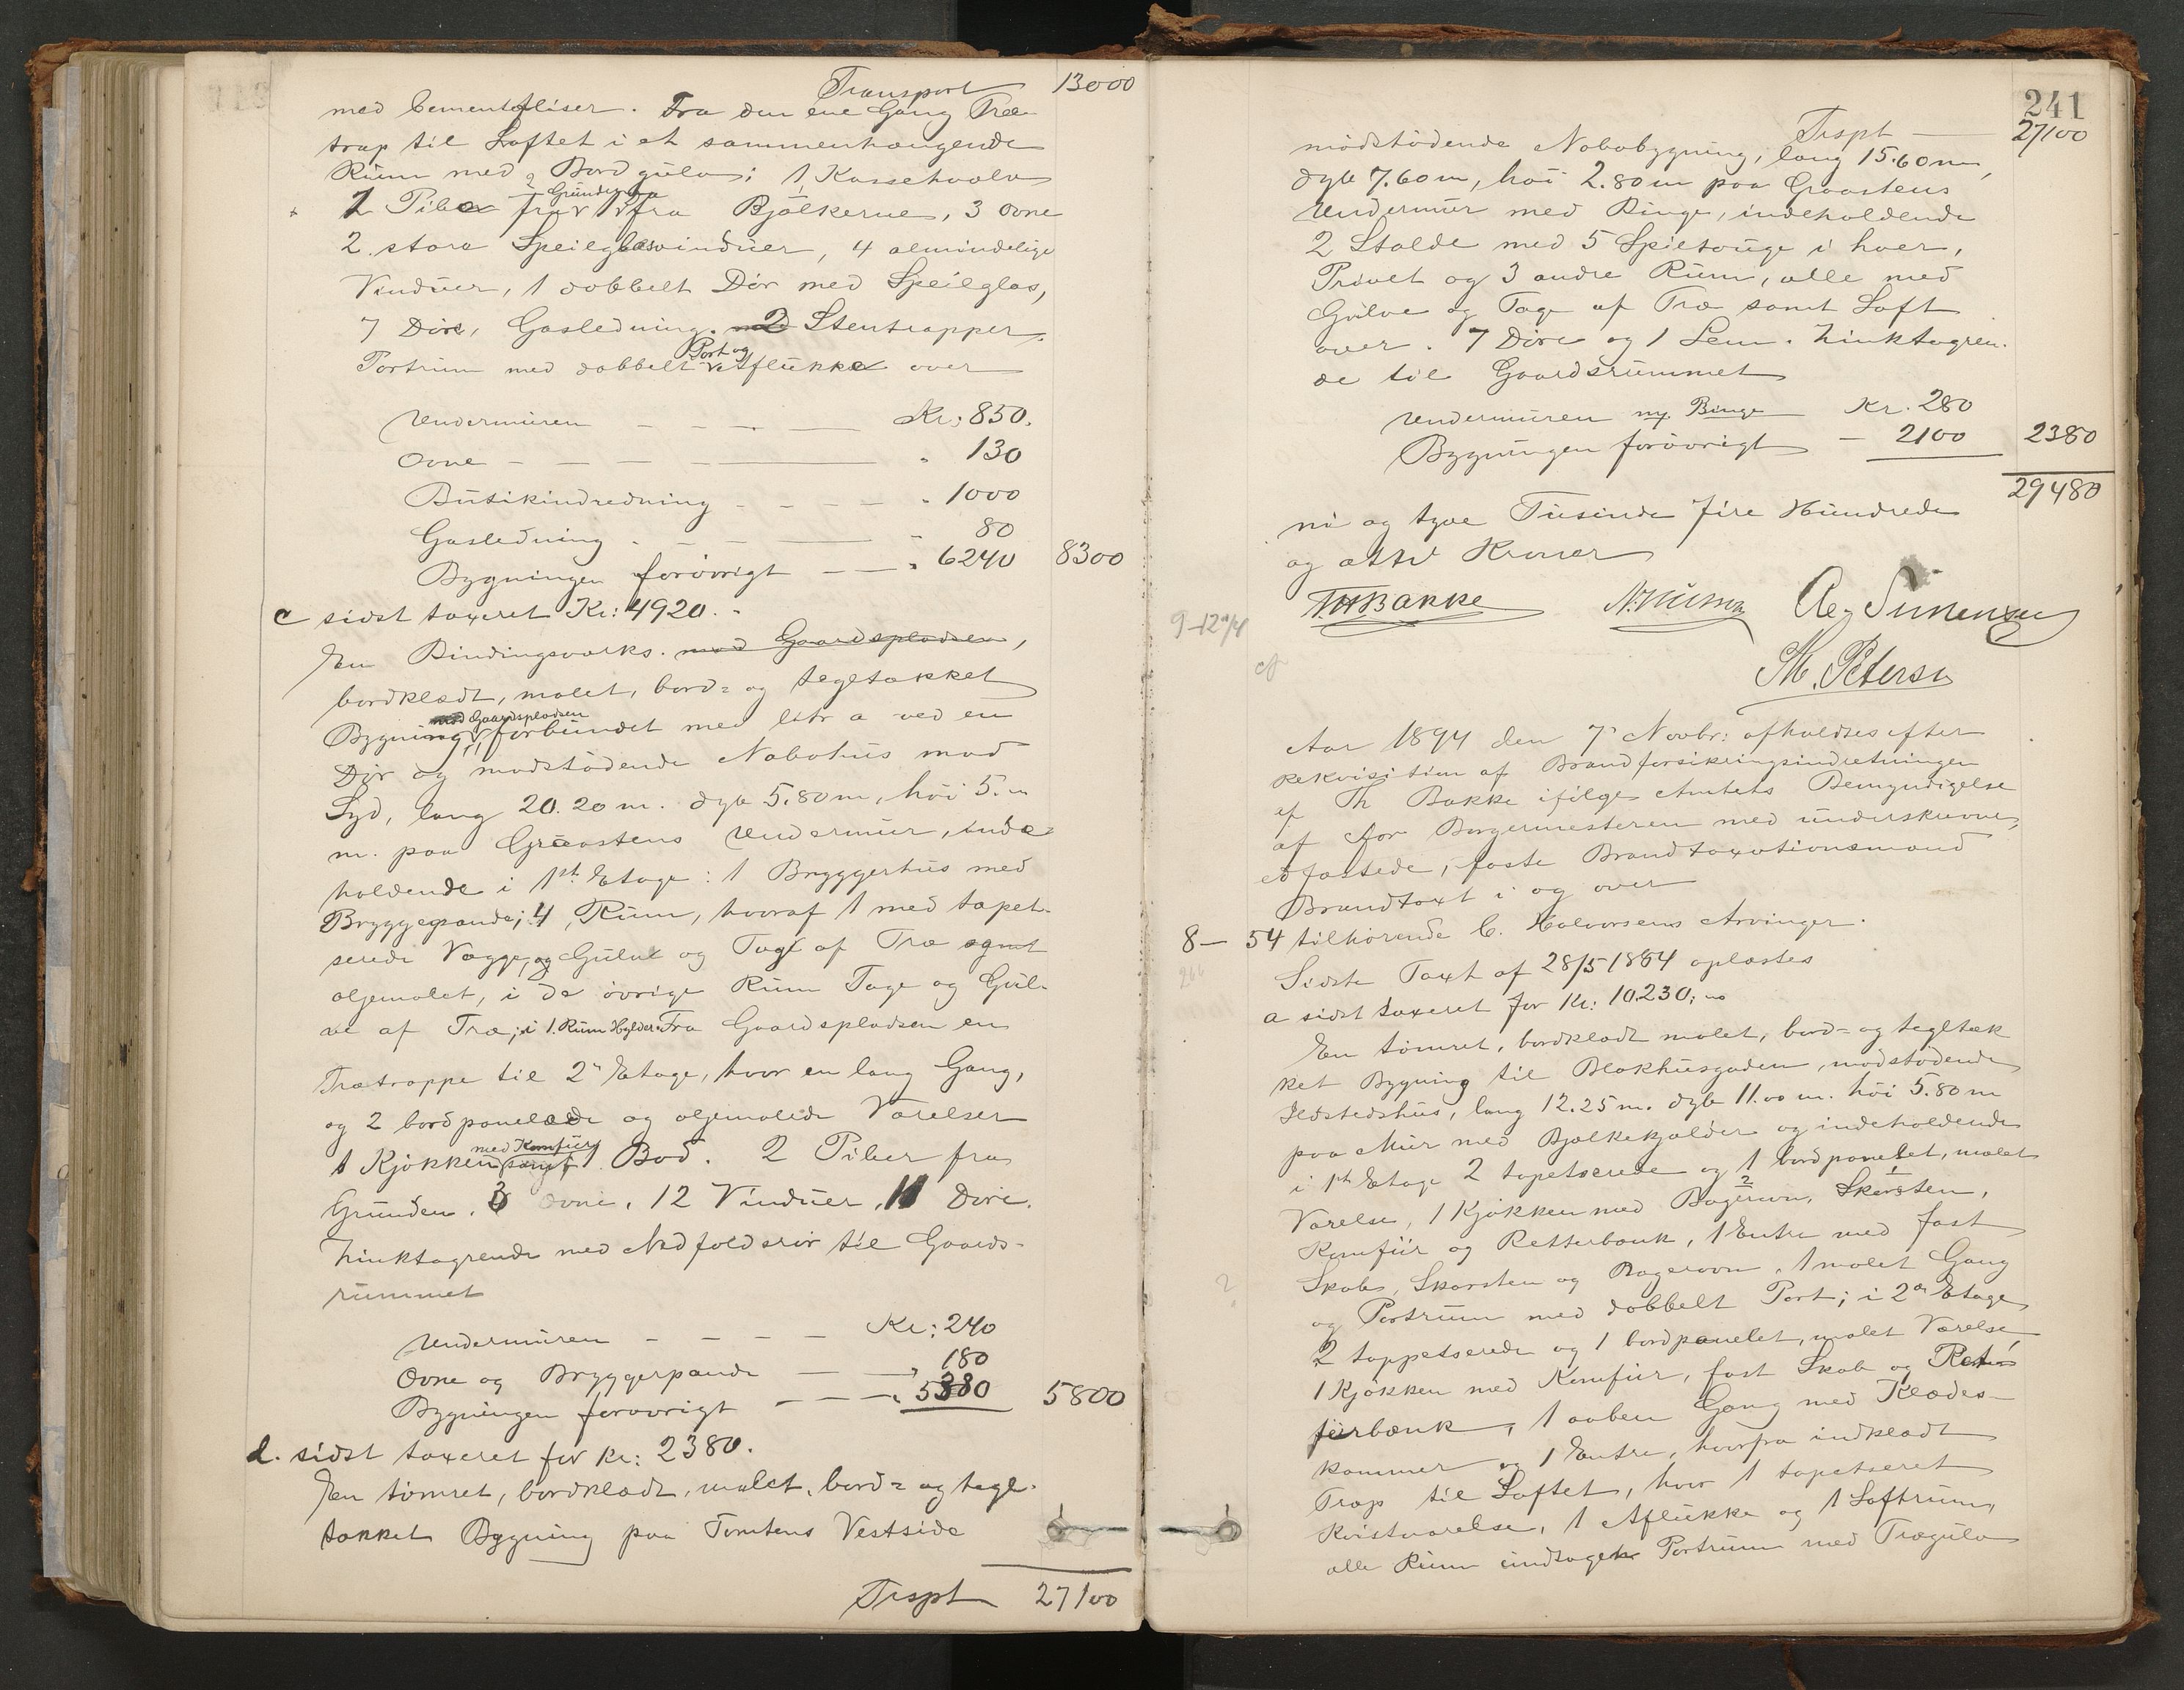 Transport 13000
med Cementfliser. Fra den ene Gang Træ-
trap til Loftet i et sammenhængende
Rum med Bordgulv; 1 Kassehvælv
1 Pibe fra Grunden 2 fra Bjælkerne, 3 Ovne
2 store Speilglasvinduer, 4 almindelige
Vinduer, 1 dobbelt Dør med Speilglas,
7 Døre, Gasledning. 2 Stentrapper.
Portrum med dobbelt Port og Aflukke over
Undermuren - - - Kr: 850.
Ovne - - - " 130
Butikindredning - - - " 1000
Gasledning - - - 80
Bygningen forøvrigt - - " 6240 8300
c sidst taxeret Kr: 4920.-
En Bindingsværks. med Gaardspladsen,
bordklædt, malet, bord= og tegltækket
Bygning, med Gaardspladsen forbundet med litr a ved en
Dør og modstødende Nabohus mod
Syd, lang 20.20 m. dyb 5.80 m, høi 5.
m. paa Graastens Undermur, inde=
holdende i 1st Etage: 1 Bryggerhus med
Bryggepande; 4 Rum, hvoraf 1 med tapet-
serede Vægge, og Gulv og Tag af Træ samt
oljemalet, i de øvrige Rum Tage og Gul-
ve af Træ; i 1. Rum Hylder. Fra Gaardspladsen en
Trætrappe til 2n Etage, hvor en lang Gang,
og 2 bordpanelede og oljemalede Værelser
1 Kjøkken med Komfur 1 Bod. 2 Piber fra
Grunden. 3 Ovne, 12 Vinduer, 11 Døre.
Zinktagrende med Nedfaldsrør til Gaards-
rummet
Undermuren - - - - Kr: 240
Ovne og Bryggerpande - " 180
Bygningen forøvrigt - - " 5380 5800
d. sidst taxeret for Kr: 2380.
En tømret, bordklædt, malet, bord= og tegl-
tækket Bygning paa Tomtens Vestside
Trspt 27100
241
Trspt 27100
modstødende Nabobygning, lang 15.60 m,
dyb 7.60 m, høi 2.80 m paa Graastens
Undermur med Binge, indeholdende
2 Stalde med 5 Spiltouge i hver,
Privet og 3 andre Rum, alle med
Gulve og Tage af Træ samt Loft
over. 7 Døre og 1 Lem. Zinktagren-
de til Gaardsrummet
Undermuren m. Binge Kr. 280
Bygningen forøvrigt - 2100 2380
29480
ni og tyve Tusinde fire Hundrede
og otti Kroner
T.H. Bakke
M. Petersen
Aar 1894 den 7 Novbr: afholdtes efter
Rekvisition af Brandforsikringsindretningen
af Th Bakke ifølge Amtets Bemyndigelse
af for Borgermesteren med underskrevne,
edfæstede, faste Brandtaxationsmænd
Brandtaxt i og over
8 — 54 tilhørende C. Halvorsens Arvinger.
Sidste Taxt af 28/5 1864 oplæstes
a sidst taxeret for Kr: 10.230;
En tømret, bordklædt malet, bord= og tegltæk
ket Bygning til Blokhusgaden, modstødende
Ildstedshus, lang 12.25 m. dyb 11.00 m. høi 5.80 m
paa Mur med Bjælkekjælder og indeholdende
i 1st Etage 2 tapetserede og 1 bordpanelet, malet
Værelse, 1 Kjøkken med Bagerovn, Skorsten,
Komfur og Retterbænk, 1 Entre med fast
Skab, Skorsten og Bagerovn, 1 malet Gang
og Portrum med dobbelt Port; i 2den Etage
2 tappetserede og 1 bordpanelet, malet Værelse
1 Kjøkken med Komfur, fast Skab og Ret-
terbænk, 1 aaben Gang med Klædes-
kammer og 1 Entre, hvorfra indklædt
Trap til Loftet, hvor 1 tapetseret
Kvistværelse, 1 Aflukke og 1 Loftrum,
alle Rum undtagen Portrum med Trægulv